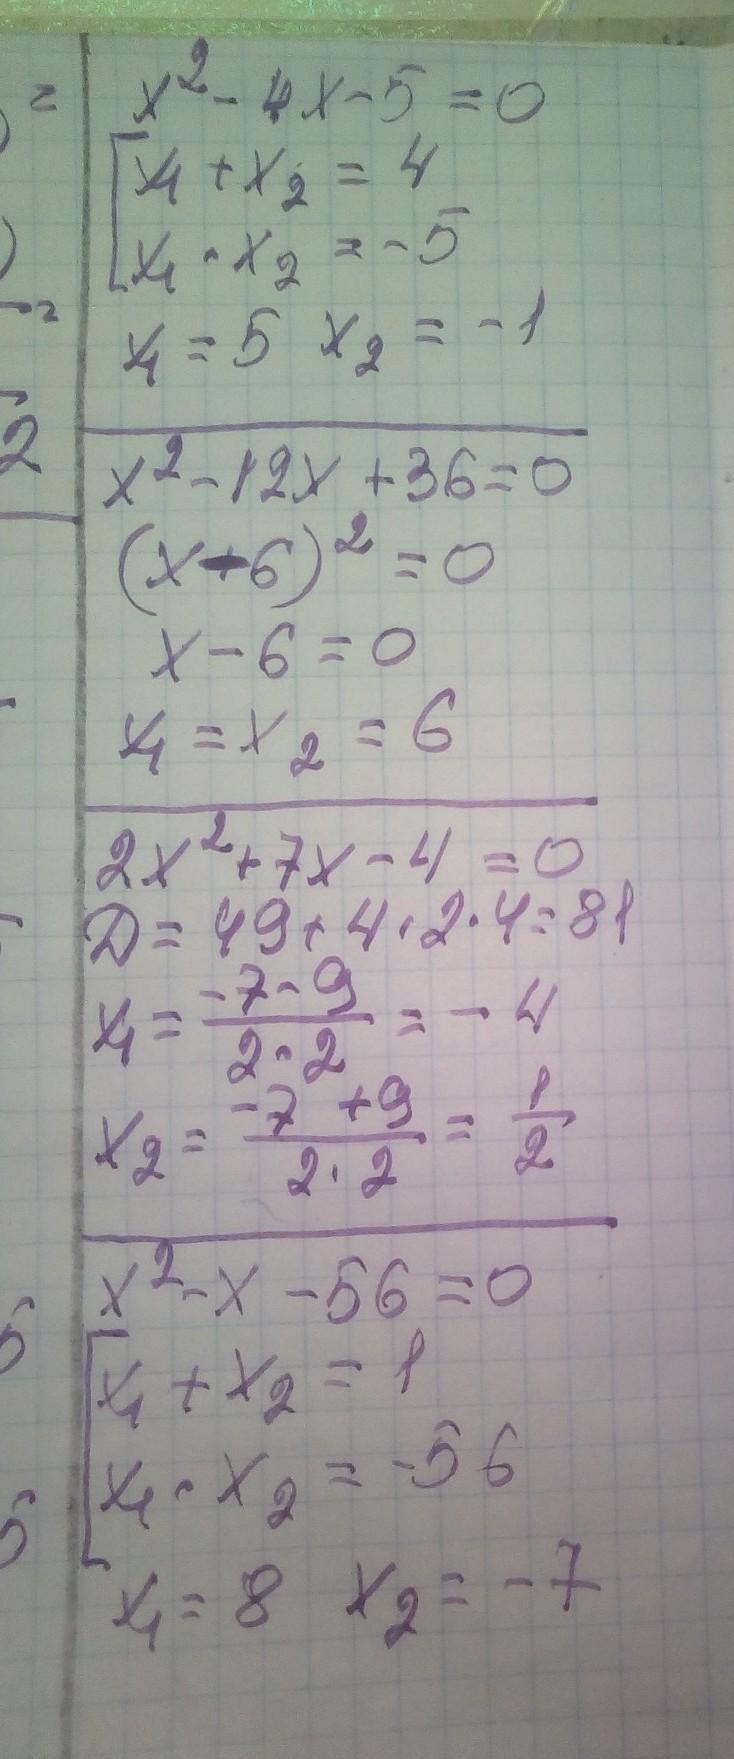 x² - 4x - 5 = 0
x₁ + x₂ = 4
x₁ · x₂ = -5
x₁ = 5 x₂ = -1
x² - 12x + 36 = 0
(x - 6)² = 0
x - 6 = 0
x₁ = x₂ = 6
2x² + 7x - 4 = 0
D = 49 + 4 · 2 · 4 = 81
x₁ = (-7 - 9)/(2 · 2) = -4
x₂ = (-7 + 9)/(2 · 2) = 1/2
x² - x - 56 = 0
x₁ + x₂ = 1
x₁ · x₂ = -56
x₁ = 8 x₂ = -7